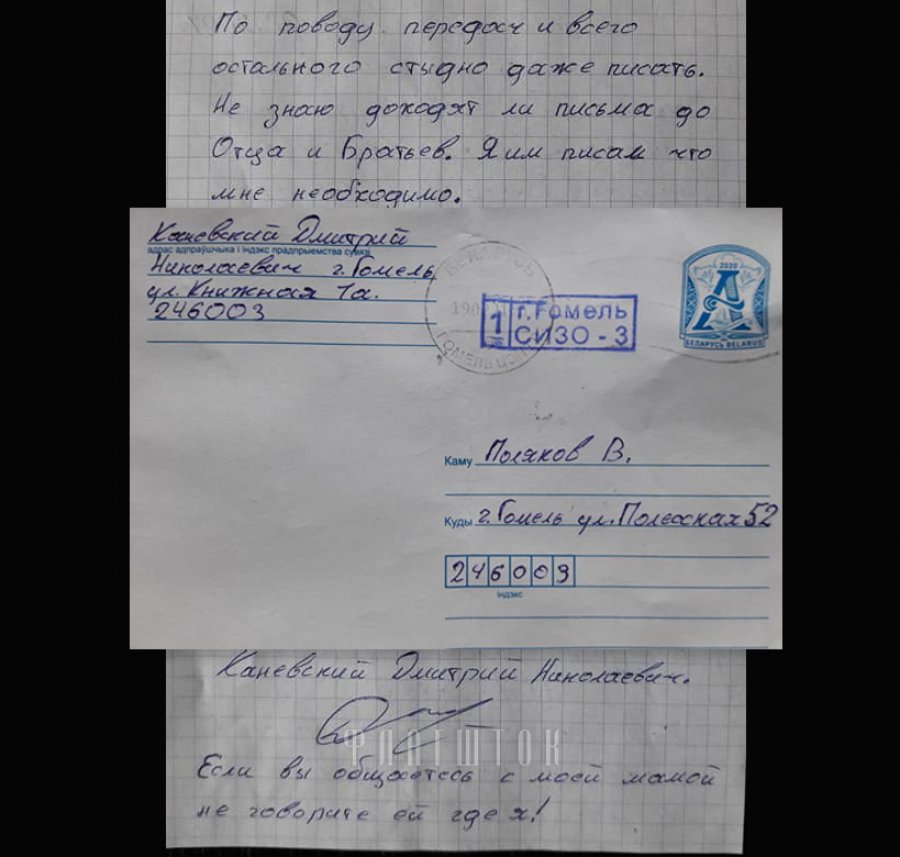 По поводу передач и всего
остального стыдно даже писать.
Не знаю доходят ли письма до
Отца и Братьев. Я им писал что
мне необходимо.
Каневский Дмитрий
адрас адпраўшчыка і індэкс прадпрыемства сувязі
Николаевич г. Гомель
ул. Книжная 1а.
246003
БЕЛАРУСЬ
ГОМЕЛЬ
1
г. Гомель
СИЗО - 3
2020
А
БЕЛАРУСЬ BELARUS
Каму Поляков В.
Куды г. Гомель ул. Полесская 52
246003
індэкс
Каневский Дмитрий Николаевич.
ФЛАГШТОК
Если вы общаетесь с моей мамой
не говорите ей где я!